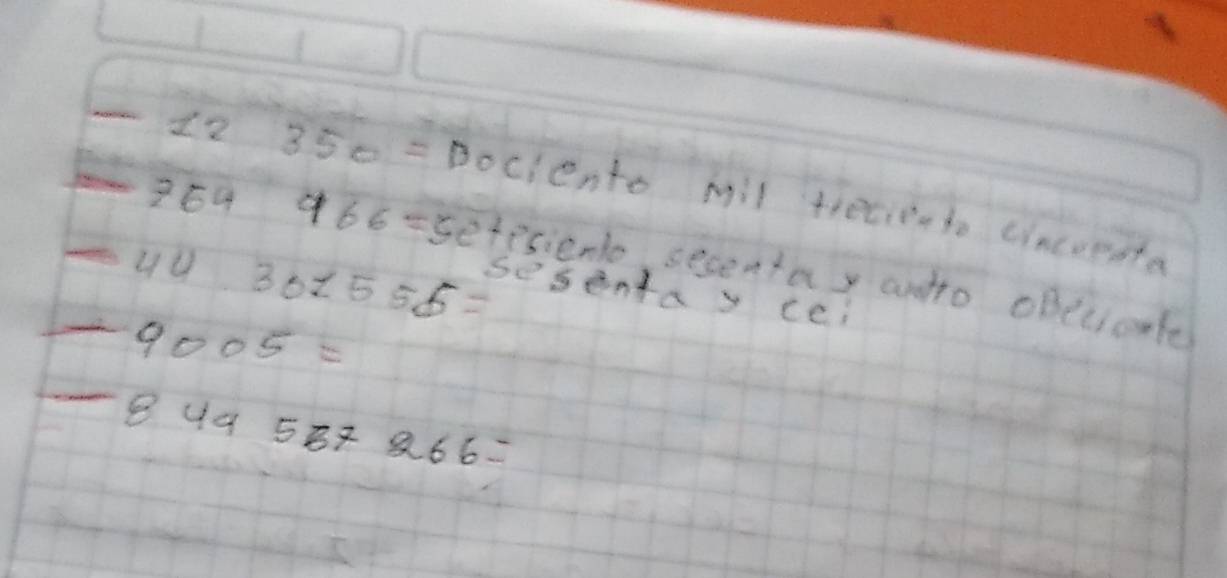 - 12 350 = Dociento mil treciento cincuenta
- 764 966 = setesiento, sesenta y cuatro
sesenta y cei
- 44 301 555 =
- 9005 =
- 849 537 266 =